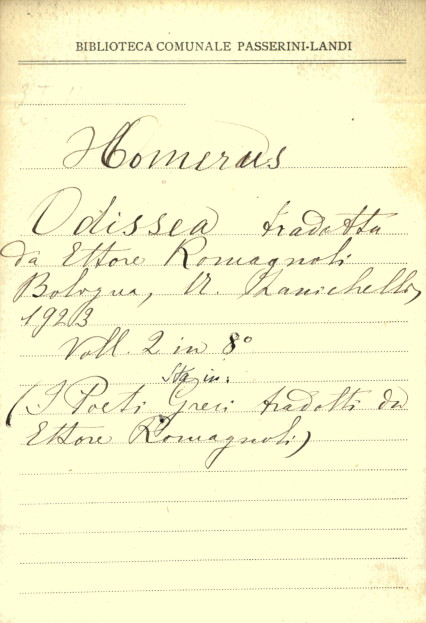 BIBLIOTECA COMUNALE PASSERINI-LANDI
Homerus
Odissea tradotta
da Ettore Romagnoli
Bologna, N. Zanichelli,
1923
Voll. 2 in 8°
(I Poeti Greci tradotti da
Ettore Romagnoli)